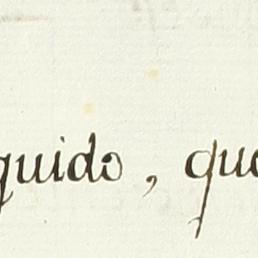 quido, que